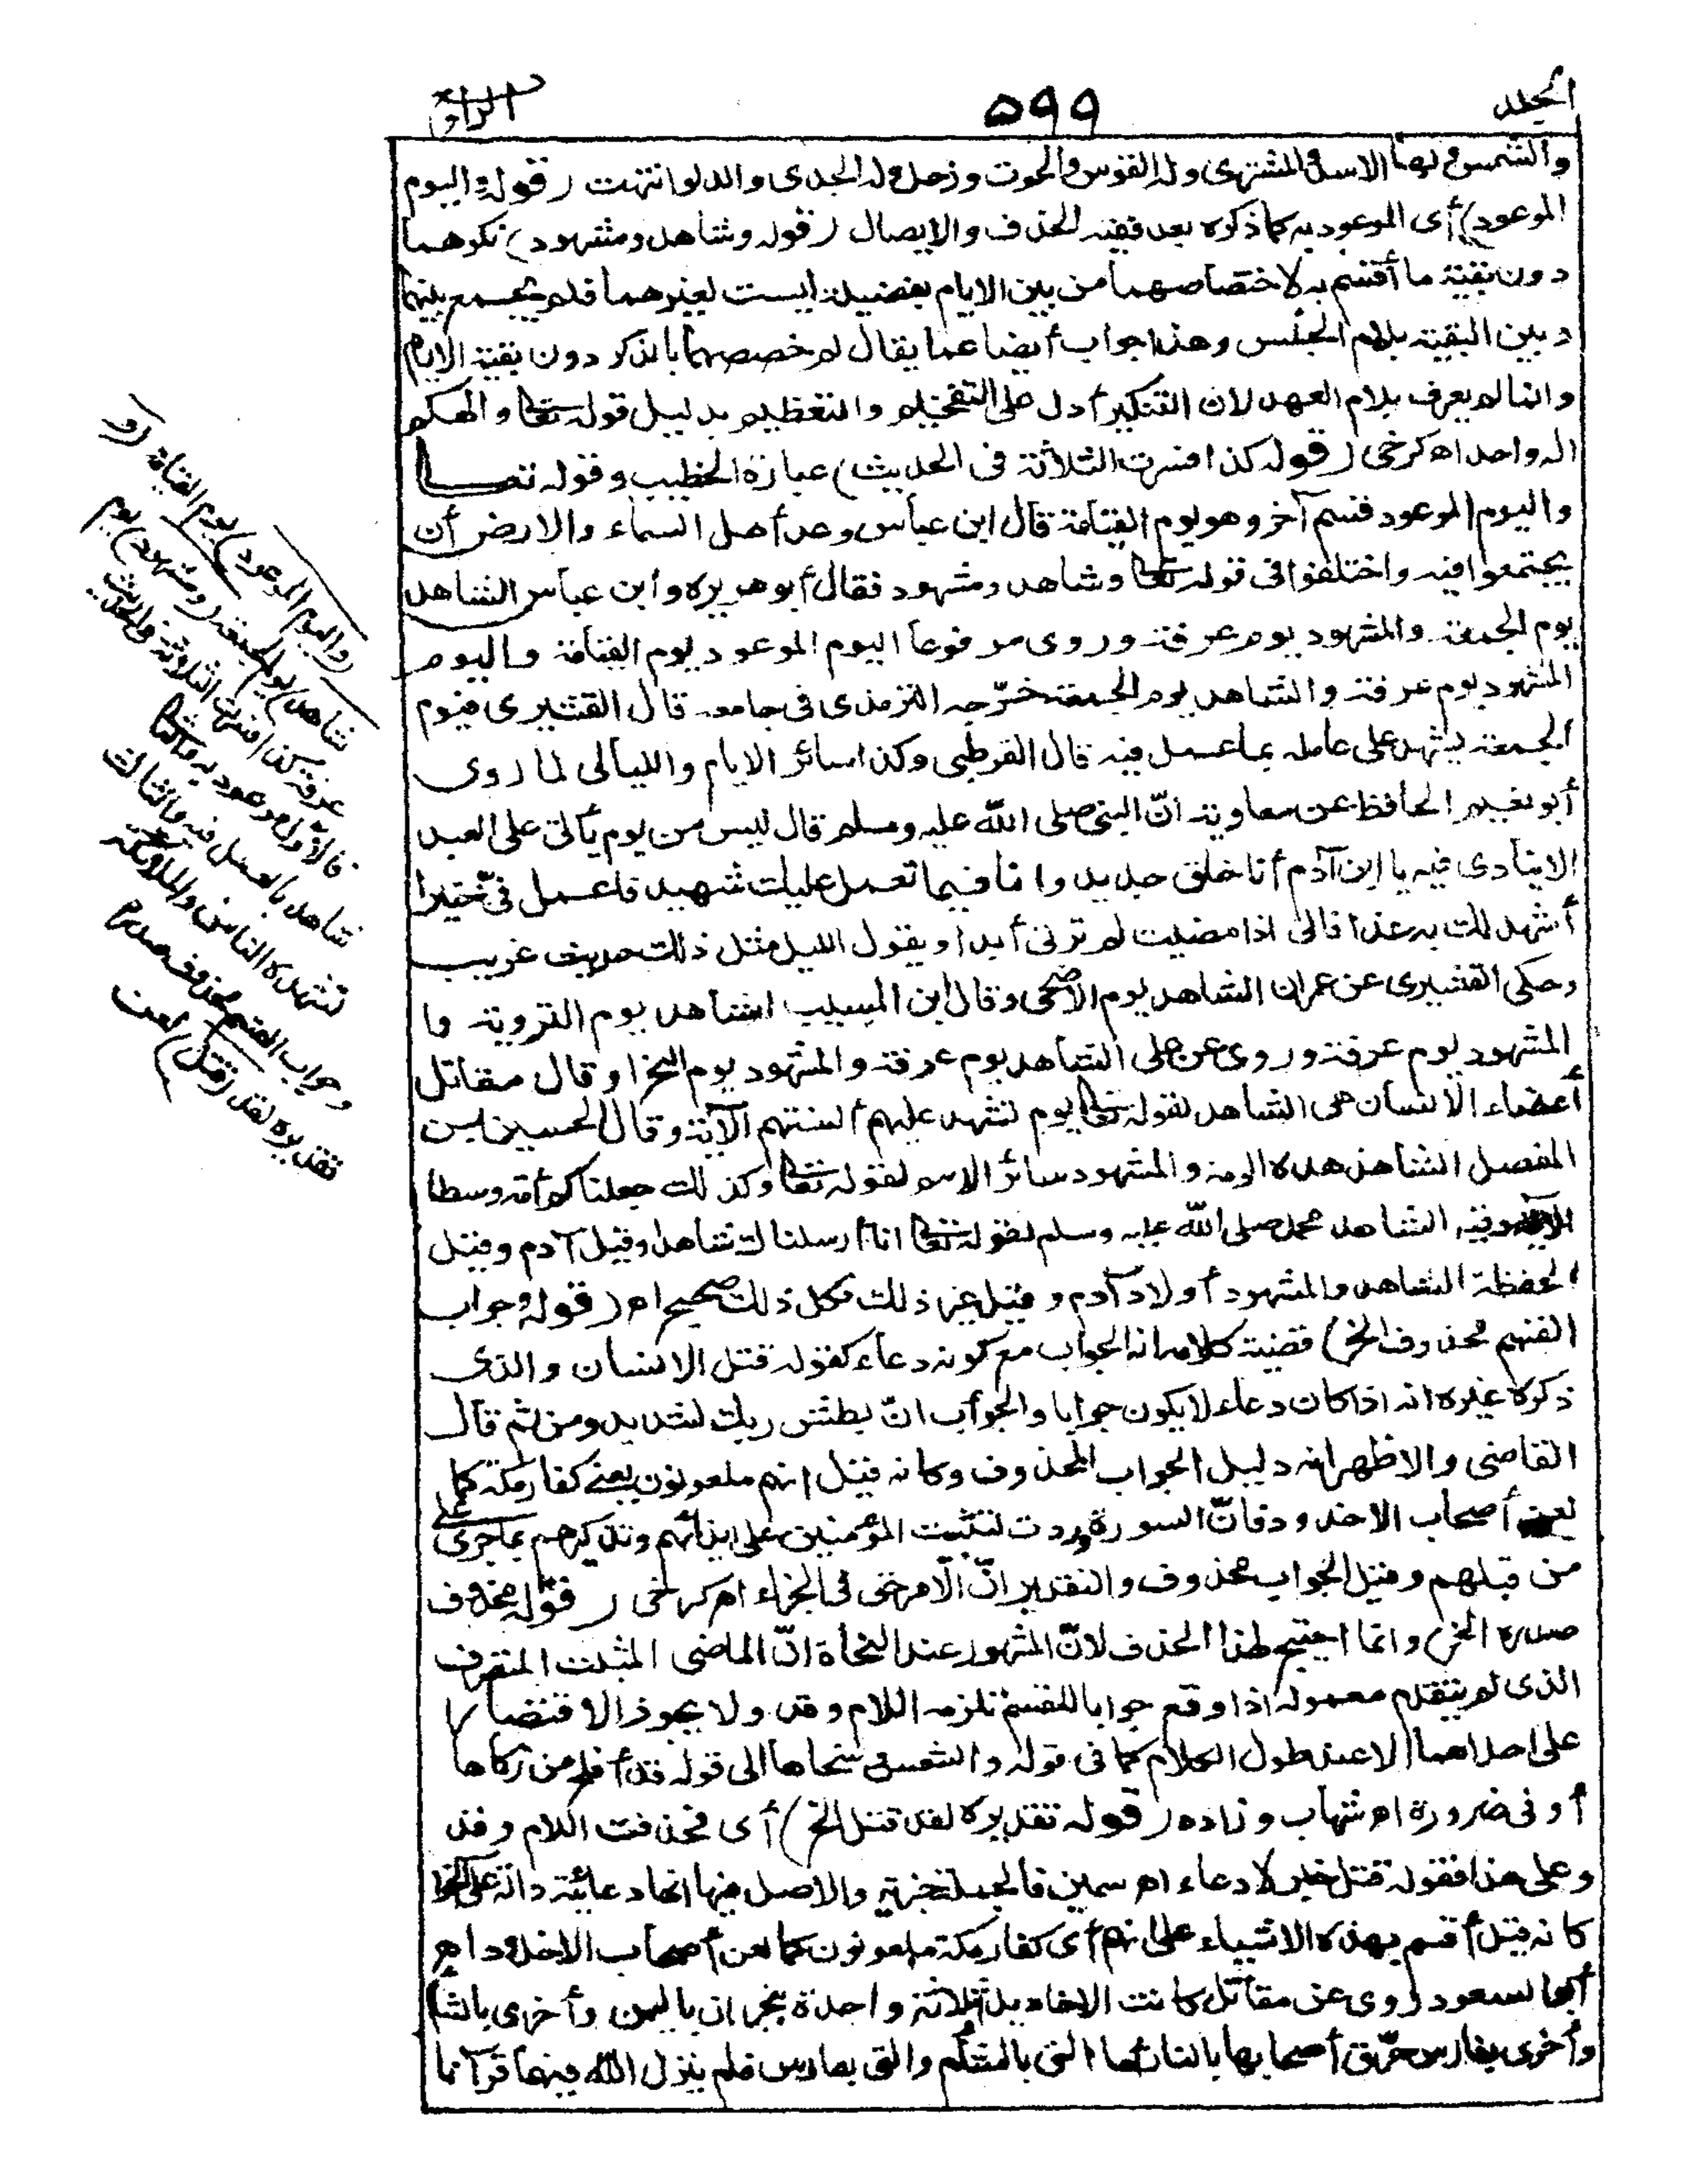 الجلد
٥٩٩
الرابع
والشمس ولها الاسد والمشترى وله القوس والحوت وزحل وله الجدى والدلو انتهت (قوله واليوم
الموعود) أى الموعود به كما ذكره بعد ففيه الحذف والايصال (قوله وشاهد ومشهود) نكرهما
دون بقية ما أقسم به لاختصاصهما من بين الايام بفضيلة ليست لغيرهما فلم يجمع بينهما
و بين البقية بلام الجنس وهذا جواب أيضا عما يقال لم خصصهما بالذكر دون بقية الايام
وانما لم يعرف بلام العهد لان التنكير أدل على التفخيم والتعظيم بدليل قوله تعالى والهكم
اله واحد اه كرخى (قوله كذا فسرت الثلاثة فى الحديث) عبارة الخطيب وقوله تعالى
واليوم الموعود قسم آخر وهو يوم القيامة قال ابن عباس وعد أهل السماء والارض أن
يجتمعوا فيه واختلفوا فى قوله تعالى وشاهد ومشهود فقال أبو هريرة وابن عباس الشاهد
يوم الجمعة والمشهود يوم عرفة وروى مرفوعا اليوم الموعود يوم القيامة واليوم
المشهود يوم عرفة والشاهد يوم الجمعة خرّجه الترمذى فى جامعه قال القشيرى فيوم
الجمعة يشهد على عامله بما عمل فيه قال القرطبى وكذا سائر الايام والليالى لما روى
أبو نعيم الحافظ عن معاوية انّ النبى صلى الله عليه وسلم قال ليس من يوم يأتى على العبد
الا ينادى فيه يا ابن آدم أنا خلق جديد وانا فيما تعمل عليك شهيد فاعمل فىّ خيرا
أشهد لك به غدا فانى اذا مضيت لم ترنى أبدا ويقول الليل مثل ذلك حديث غريب
وحكى القشيرى عن عمران الشاهد يوم الاضحى وقال ابن المسيب الشاهد يوم التروية وا
المشهود يوم عرفة وروى عن على الشاهد يوم عرفة والمشهود يوم النحر وقال مقاتل
أعضاء الانسان هى الشاهد لقوله تعالى يوم تشهد عليهم ألسنتهم الآية وقال الحسين بن
المفضل الشاهد هذه الامة والمشهود سائر الامم لقوله تعالى وكذلك جعلناكم أمة وسطا
الآية وقيل الشاهد محمد صلى الله عليه وسلم لقوله تعالى انا أرسلناك شاهدا وقيل آدم وقيل
الحفظة الشاهد والمشهود أولاد آدم وقيل غير ذلك فكل ذلك صحيح اه (قوله وجواب
القسم محذوف الخ) قضية كلامه انه الجواب مع كونه دعاء كقوله قتل الانسان والذى
ذكره غيره انه اذا كان دعاء لا يكون جوابا والجواب انّ بطش ربك لشديد ومن ثم قال
القاضى والاظهر انه دليل الجواب المحذوف وكانه قيل انهم ملعونون يعنى كفار مكة كما
لعن أصحاب الاخدود فانّ السورة وردت لتثبيت المؤمنين على ايذائهم وتذكيرهم بما جرى على
من قبلهم وقيل الجواب محذوف والتقدير انّ الامر حق فى الجزاء اه كرخى (قوله محذوف
صدره الخ) وانما احتيج لهذا الحذف لانّ المشهور عند النحاة انّ الماضى المثبت المتصرف
الذى لم يتقدم معموله اذا وقع جوابا للقسم تلزمه اللام وقد ولا يجوز الاقتصار
على احداهما الا عند طول الكلام كما فى قوله والشمس وضحاها الى قوله قد أفلح من زكاها
أو فى ضرورة اه شهاب وزاده (قوله تقديره لقد قتل الخ) أى فحذفت اللام وقد
وعلى هذا فقوله قتل خبر لا دعاء اه سمين فالجملة خبرية والاصل فيها انها دعائية دالة على الجواب
كانه قيل أقسم بهذه الاشياء على انهم أى كفار مكة ملعونون كما لعن أصحاب الاخدود اهـ
أبو السعود روى عن مقاتل كانت الاخاديد ثلاثة واحدة بنجران باليمن وأخرى بالشام
وأخرى بفارس حرّق أصحابها بالنار أما التى بالشأم والتى بفارس فلم ينزل الله فيهما قرآنا
(واليوم الموعود) يوم القيامة (و
شاهد) يوم الجمعة (ومشهود) يوم
عرفة كذا فسرت الثلاثة فى الحديث
فالاوّل موعود به والثانى
شاهد بالعمل فيه والثالث
تشهده الناس والملائكة
وجواب القسم محذوف صدره
تقديره لقد (قتل) لعن